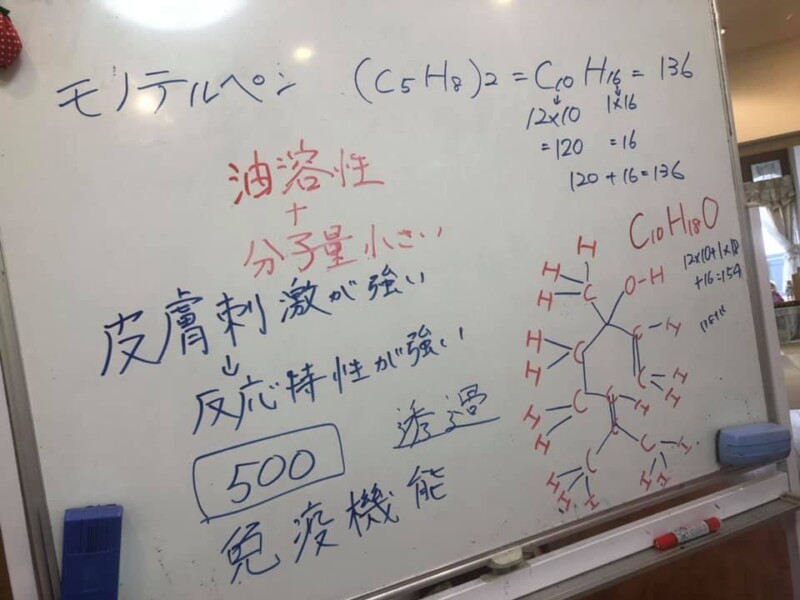 モノテルペン (C5H8)2 = C10H16 = 136
12×10 1×16
=120 =16
120+16=136
油溶性
+
分子量小さい
皮膚刺激が強い
↓
反応特性が強い
500 透過
免疫機能
C10H18O
12×10+1×18
+16=154
H
H
H
C
O-H
H
H
C
C
H
H
H
C
C
H
H
C
H
C
C
C
H
H
H
H
H
H